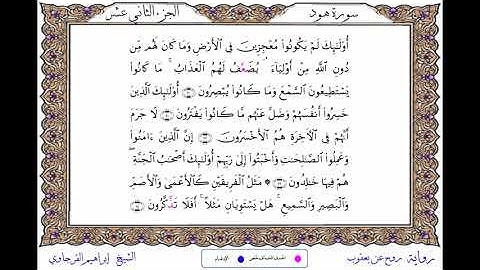 سورة هود
الجزء الثاني عشر
أُوْلَٰٓئِكَ لَمْ يَكُونُواْ مُعْجِزِينَ فِي ٱلْأَرْضِ وَمَا كَانَ لَهُم مِّن
دُونِ ٱللَّهِ مِنْ أَوْلِيَآءَ ۘ يُضَعَّفُ لَهُمُ ٱلْعَذَابُ ۚ مَا كَانُواْ
يَسْتَطِيعُونَ ٱلسَّمْعَ وَمَا كَانُواْ يُبْصِرُونَ أُوْلَٰٓئِكَ ٱلَّذِينَ
خَسِرُوٓاْ أَنفُسَهُمْ وَضَلَّ عَنْهُم مَّا كَانُواْ يَفْتَرُونَ لَا جَرَمَ
أَنَّهُمْ فِي ٱلْأٓخِرَةِ هُمُ ٱلْأَخْسَرُونَ إِنَّ ٱلَّذِينَ ءَامَنُواْ
وَعَمِلُواْ ٱلصَّٰلِحَٰتِ وَأَخْبَتُوٓاْ إِلَىٰ رَبِّهِمْ أُوْلَٰٓئِكَ أَصْحَٰبُ ٱلْجَنَّةِ ۖ
هُمْ فِيهَا خَٰلِدُونَ ۞ مَثَلُ ٱلْفَرِيقَيْنِ كَٱلْأَعْمَىٰ وَٱلْأَصَمِّ
وَٱلْبَصِيرِ وَٱلسَّمِيعِ ۚ هَلْ يَسْتَوِيَانِ مَثَلًا ۚ أَفَلَا تَذَّكَّرُونَ
رواية روح عن يعقوب
الشيخ إبراهيم الفرجاوي